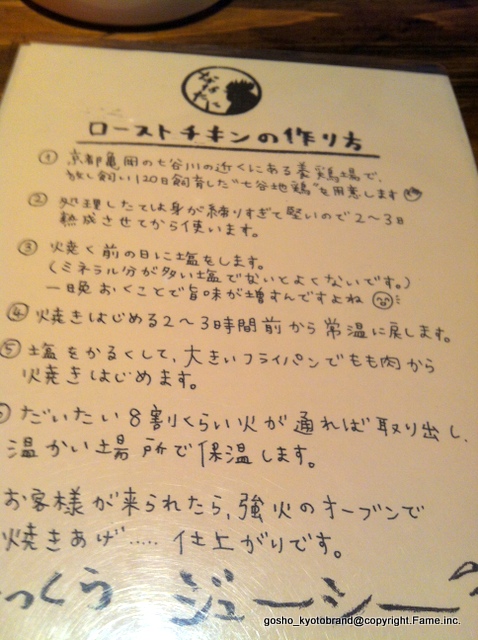 ローストチキンの作り方
① 京都亀岡の七谷川の近くにある養鶏場で、
放し飼い120日飼育した"七谷地鶏"を用意します
② 処理したては身が締りすぎて堅いので2〜3日
熟成させてから使います。
③ 焼く前の日に塩をします。
(ミネラル分が多い塩でないとよくないです。)
一晩おくことで旨味が増すんですよね
④ 焼きはじめる2〜3時間前から常温に戻します。
⑤ 塩をかるくして、大きいフライパンでもも肉から
火焼きはじめます。
だいたい8割くらい火が通れば取り出し、
温かい場所で保温します。
お客様が来られたら、強火のオーブンで
焼きあげ‥‥‥仕上がりです。
っくら ジューシー
gosho_kyotobrand@copyright.Fame.inc.